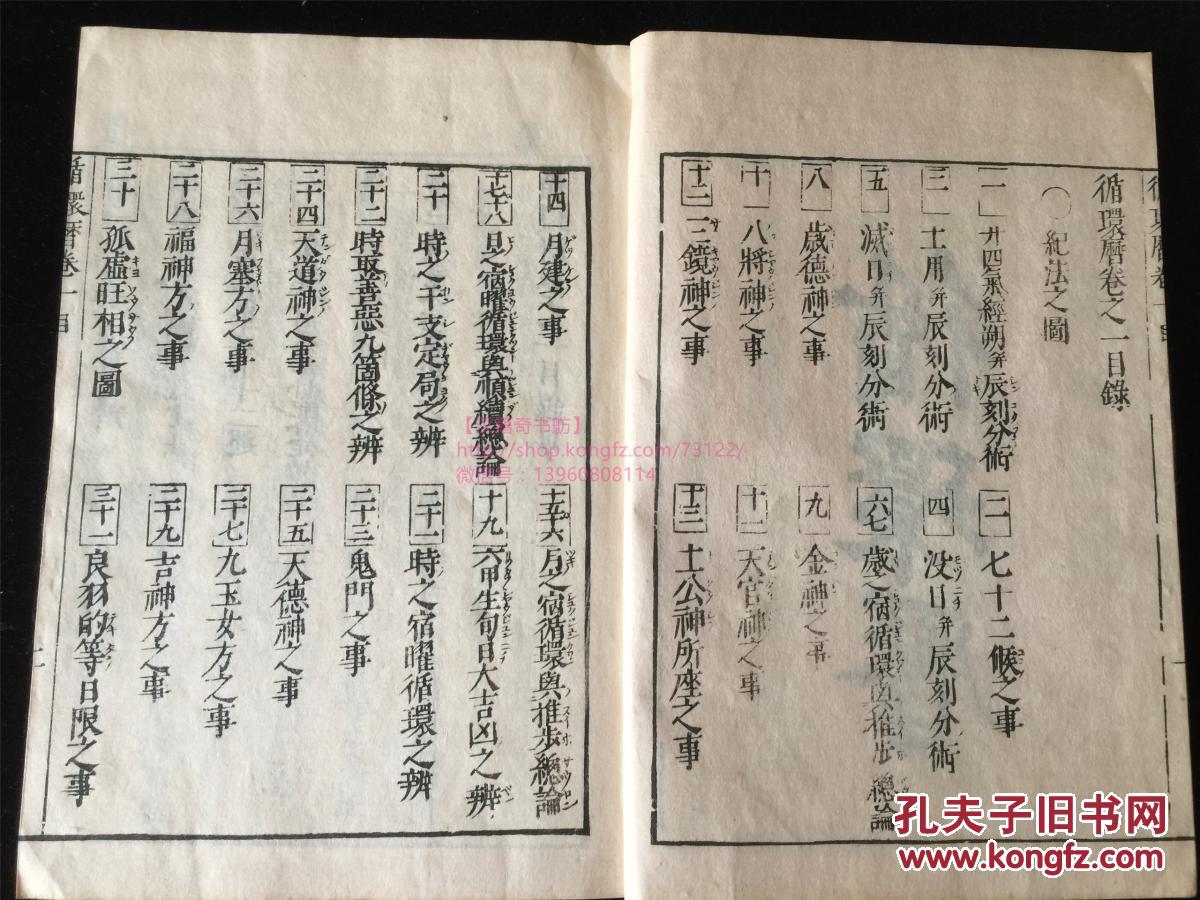 循環暦卷之一目錄
〇紀法之圖
一 廿四氣經朔并辰刻分術 二 七十二候之事
三 土用并辰刻分術 四 没日并辰刻分術
五 滅日并辰刻分術 六七 歳之宿循環與推步總論
八 歳德神之事 九 金神之事
十 八將神之事 十一 天官神之事
十二 三鏡神之事 十三 土公神所座之事
十四 月建之事 十五十六 月之宿循環與推步總論
十七十八 日之宿曜循環與禎繪總論 十九 六甲生旬日大吉凶之辨
二十 時之干支定局之辨 二十一 時之宿曜循環之辨
二十二 時取善惡九箇條之辨 二十三 鬼門之事
二十四 天道神之事 二十五 天德神之事
二十六 月塞方之事 二十七 九玉女方之事
二十八 福神方之事 二十九 吉神方之事
三十 孤虛旺相之圖 三十一 的等日限之事
循環暦卷一 目
孔夫子旧书网
www.kongfz.com
http://shop.kongfz.com/73122/
微信号：13960808114